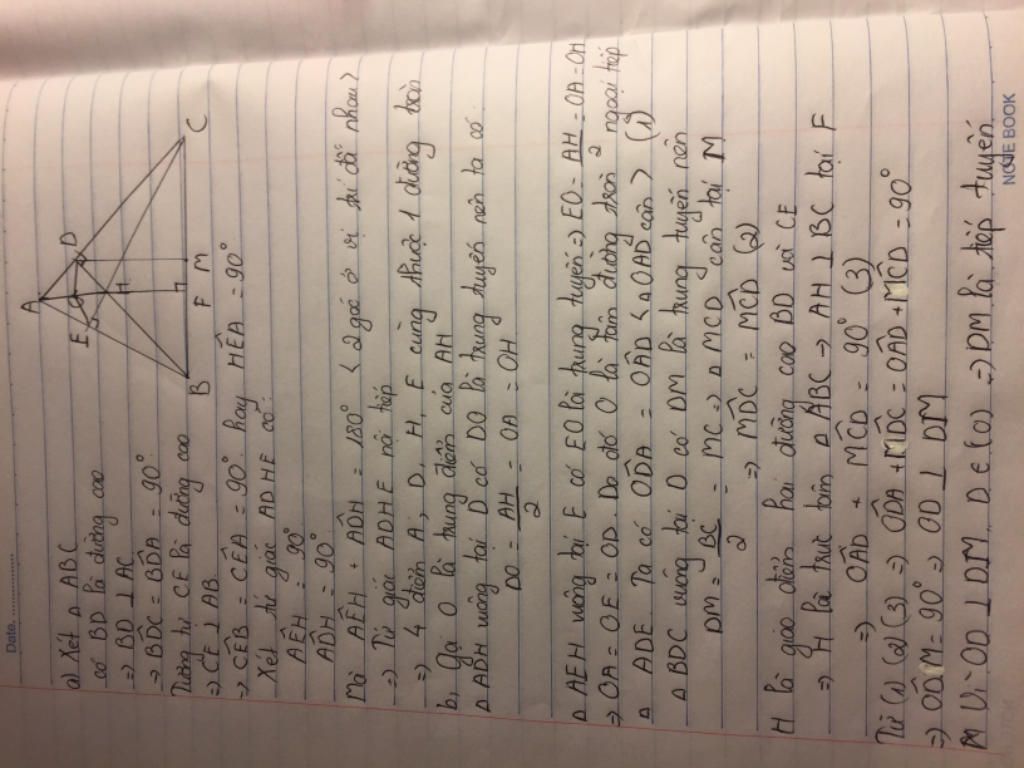 Date. ..............
A
E
D
H
B
F
M
C
a) Xét Δ ABC
có BD là đường cao
=> BD ⊥ AC
-> BD̂C = BD̂A = 90°
Tương tự CE là đường cao
=> CE ⊥ AB
-> CÊB = CÊA = 90° hay HÊA = 90°
Xét tứ giác ADHE có:
AÊH = 90°
AD̂H = 90°
Mà AÊH + AD̂H = 180° < 2 góc ở vị trí đối nhau>
-> Tứ giác ADHE nội tiếp
=> 4 điểm A, D, H, E cùng thuộc 1 đường tròn
b, Gọi O là trung điểm của AH
Δ ADH vuông tại D có DO là trung tuyến nên ta có
DO = AH/2 = OA = OH
Δ AEH vuông tại E có EO là trung tuyến => EO = AH/2 = OA = OH
=> OA = OE = OD Do đó O là tâm đường tròn ngoại tiếp
Δ ADE. Ta có OD̂A = OÂD < Δ OAD cân > (1)
Δ BDC vuông tại D có DM là trung tuyến nên
DM = BC/2 = MC => Δ MCD cân tại M
=> MD̂C = MĈD (2)
H là giao điểm hai đường cao BD và CE
=> H là trực tâm Δ ABC -> AH ⊥ BC tại F
=> OÂD + MĈD = 90° (3)
Từ (1) (2) (3) => OD̂A + MD̂C = OÂD + MĈD = 90°
=> OD̂M = 90° => OD ⊥ DM
Vì OD ⊥ DM, D ∈ (O) => DM là tiếp tuyến
NOTE BOOK